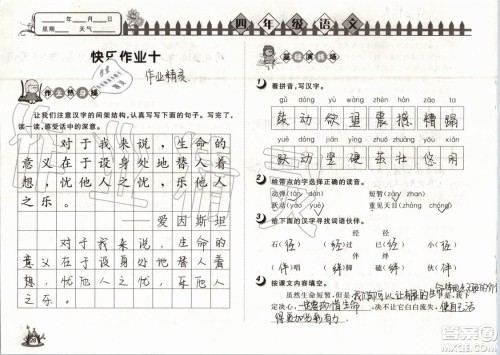 年 月 日
星期 天气
四年级语文
快乐作业十
作业精灵
作业热身操
让我们注意汉字的间架结构,认真写写下面的句子。写完了,
读一读,感受话中的深意。
对于我来说,生命的
意义在于设身处地替人着
想,忧他人之忧,乐他人
之乐。
——爱因斯坦
对于我来说,生命的
意义在于设身处地替人着
想,忧他人之忧,乐他人
之乐。
基础演练场
1 看拼音,写汉字。
gǔ dòng yù wàng zhèn hàn zāo tà
鼓动 欲望 震撼 糟蹋
yuè dòng jiān yìng zhuó zhuàng yōu xián
跃动 坚硬 茁壮
2 给带点的字选择正确的读音。
动弹(tán dàn) 短暂(zàn zhan)
跃动(yào yuè) 重见天日(zhòng chóng)
3 给下面的汉字寻找词语伙伴。
经 径
石(径) (经)过 已(经) 小(径)
伴 绊
(伴)唱 (绊)脚 陪(伴) (伴)随
4 按课文内容填空。
虽然生命短暂,但是,我们却可以让有限的生命体现出无限的价值。
是,我下
定决心,一定要珍惜生命,决不让它白白流失,使自己活
得更加光彩有力。